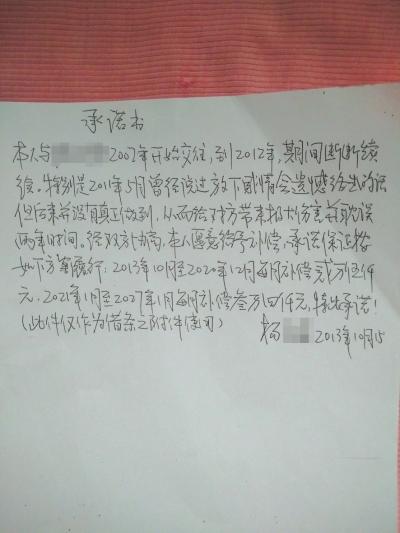 承诺书
本人与 2007年开始交往,到2012年,期间断断续
续。特别是2011年5月曾经说过放下感情会遗憾终生的话
但后来并没有真正做到,从而给对方带来极大伤害并耽误
两年时间。经双方协商,本人愿意给予补偿,承诺保证按
如下方案履行:2013年10月至2020年12月每月补偿贰万伍仟
元,2021年1月至2027年1月每月补偿叁万四仟元,特此承诺!
(此件仅作为借条之附件使用) 杨 2013年10月15